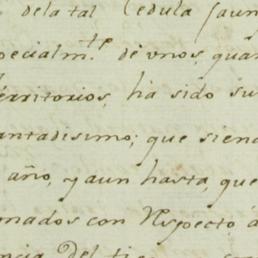 dela tal Cedula (aun
pecialm.te de vnos, quan
erritorios, ha sido su
antadisimo; que siend
año, y aun hasta, que
mados con Respecto á
ncia Del tie